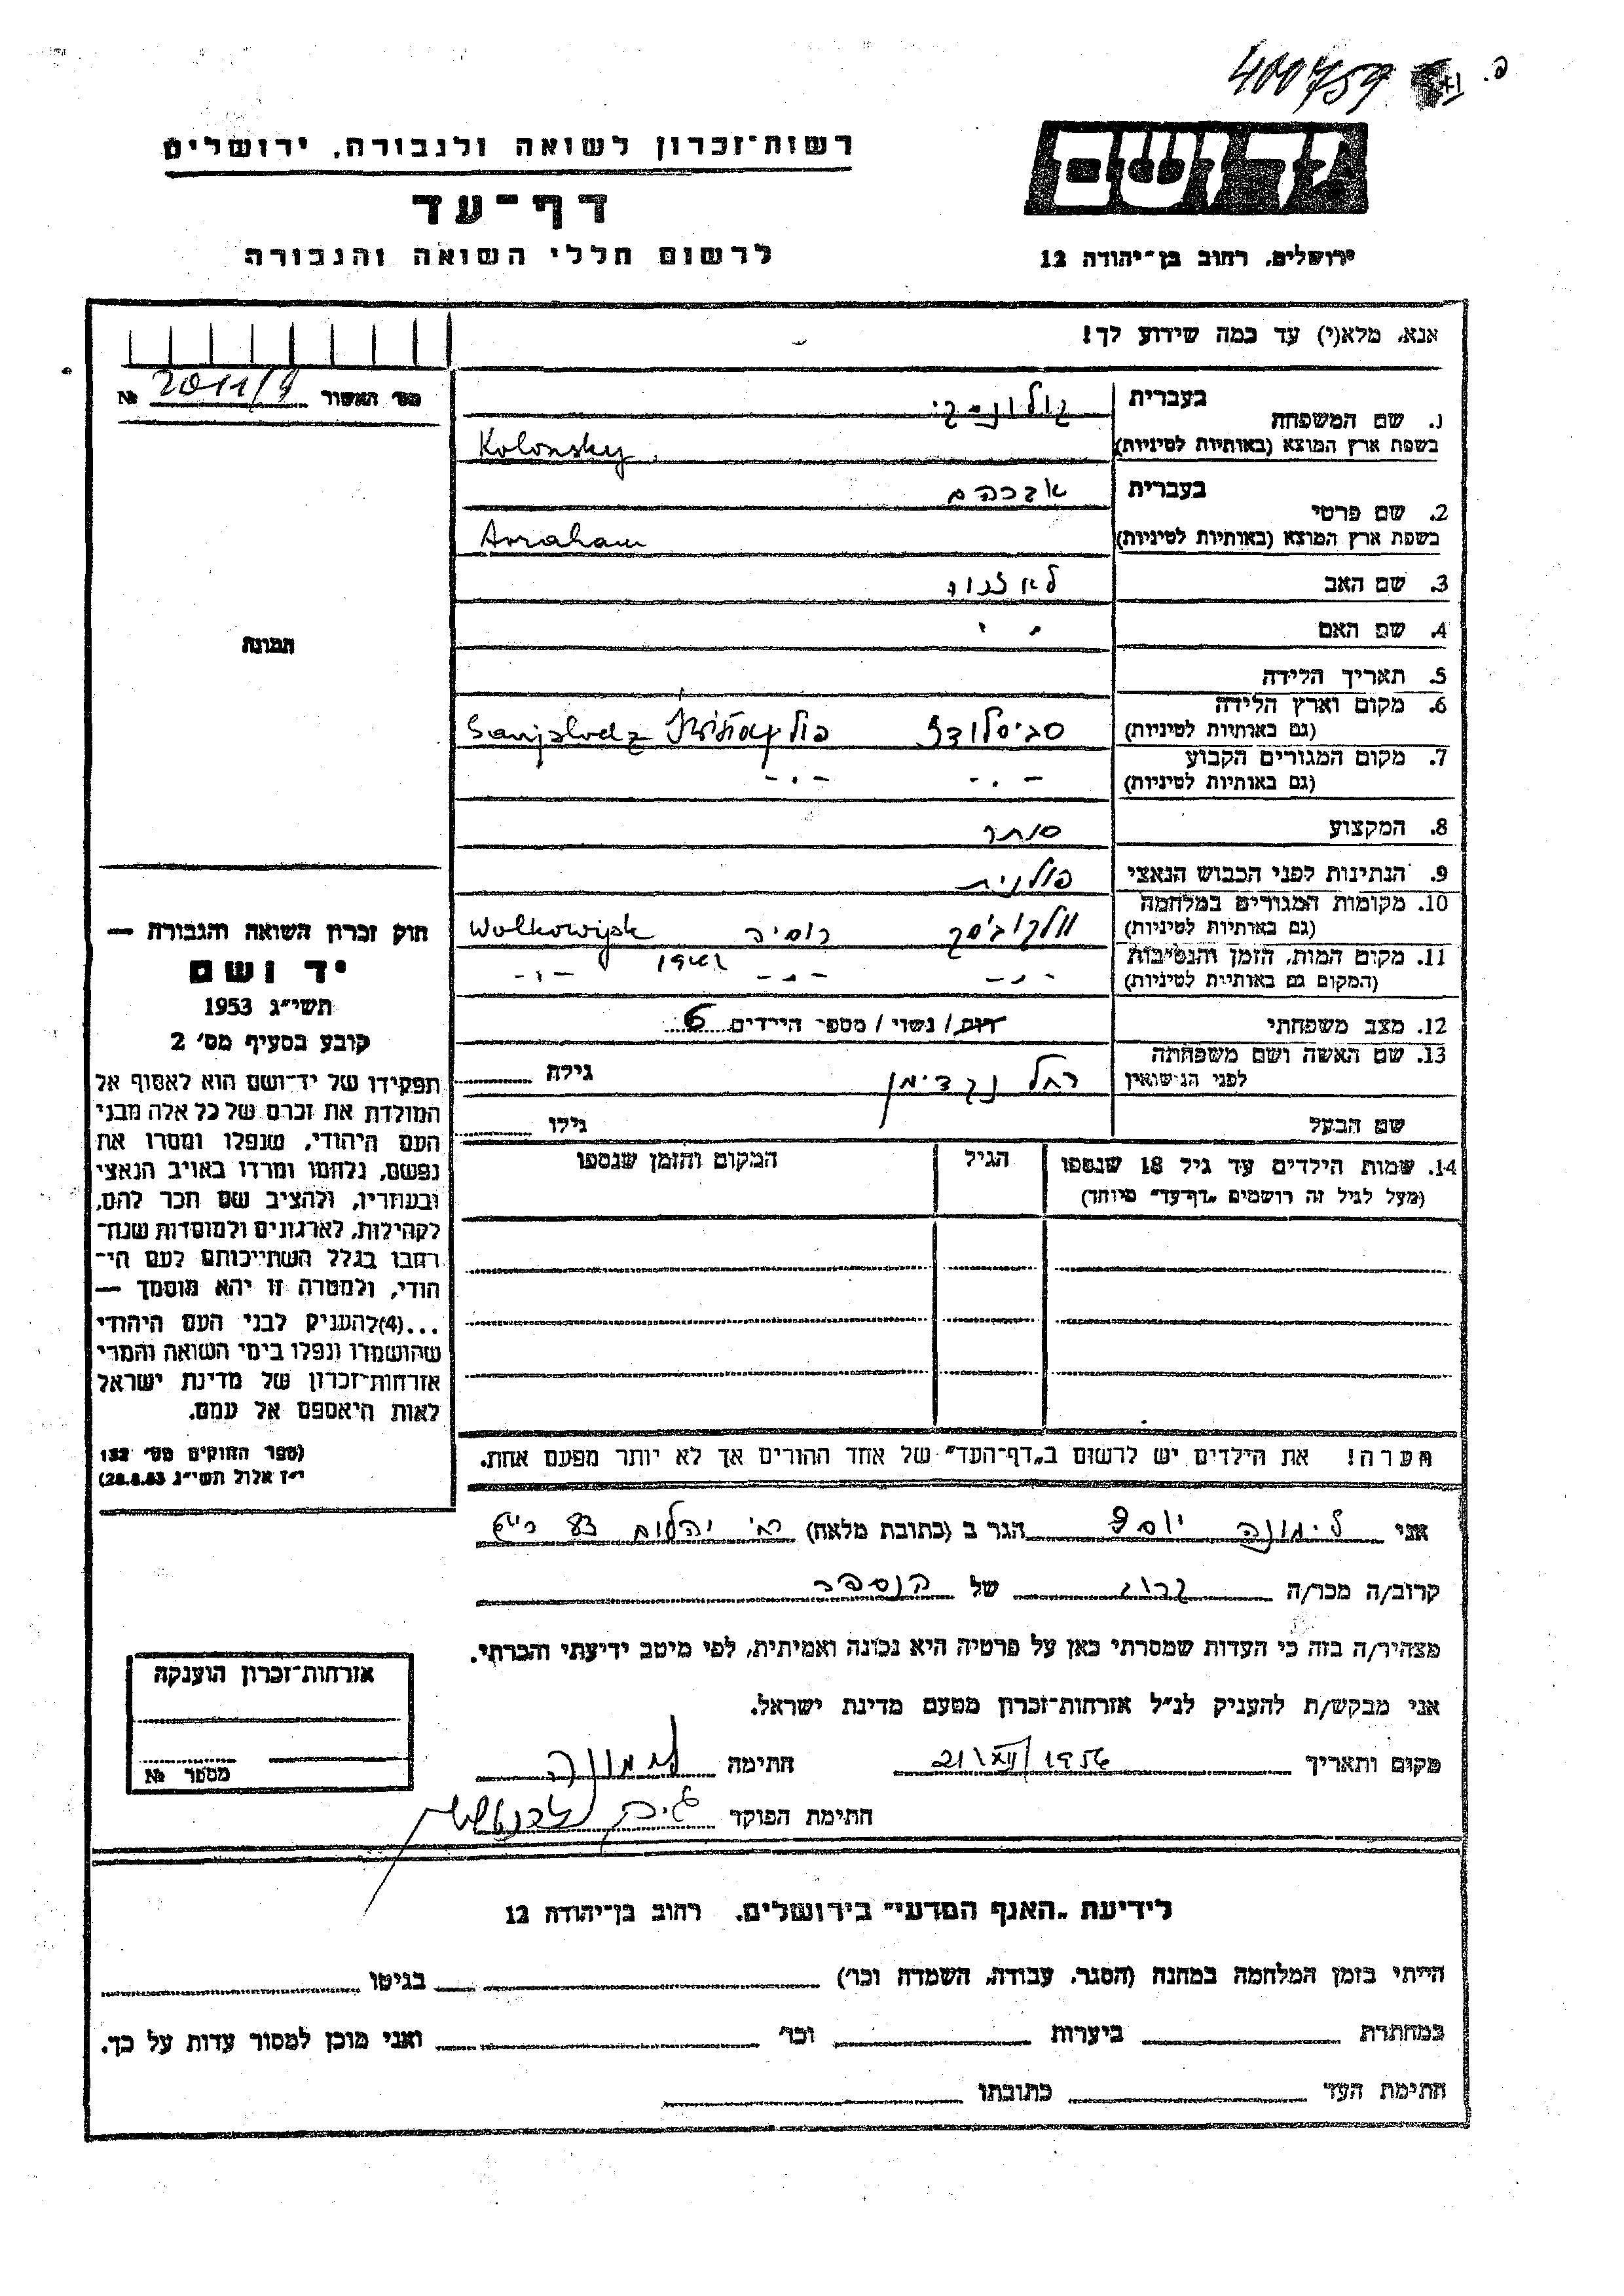 400759
פ.
רשות־זכרון לשואה ולגבורה, ירושלים
דף־עד
לרשום חללי השואה והגבורה
ירושלים, רחוב בן־יהודה 12
אנא, מלא(י) עד כמה שידוע לך!
מס׳ האשור 2011/9 №
תמונה
1. שם המשפחה בעברית קולונסקי
בשפת ארץ המוצא (באותיות לטיניות) Kolonsky
2. שם פרטי בעברית אברהם
בשפת ארץ המוצא (באותיות לטיניות) Avraham
3. שם האב
4. שם האם
5. תאריך הלידה
6. מקום וארץ הלידה
(גם באותיות לטיניות) סביסלודז Sanjslodz
7. מקום המגורים הקבוע
(גם באותיות לטיניות) - . - - . -
8. המקצוע סוחר
9. הנתינות לפני הכבוש הנאצי פולנית
10. מקומות המגורים במלחמה
(גם באותיות לטיניות) וולקוביסק רוסיה Wolkowijsk
11. מקום המות, הזמן והנסיבות
(המקום גם באותיות לטיניות) - . - - . - 1941 - . -
12. מצב משפחתי רווק/ נשוי / מספר הילדים 6
13. שם האשה ושם משפחתה
לפני הנישואין רחל נקדימן גילה
שם הבעל גילו
14. שמות הילדים עד גיל 18 שנספו הגיל המקום והזמן שנספו
(מעל לגיל זה רושמים „דף־עד״ מיוחד)
הערה! את הילדים יש לרשום ב„דף־העד״ של אחד ההורים אך לא יותר מפעם אחת.
חוק זכרון השואה והגבורה —
יד ושם
תשי״ג 1953
קובע בסעיף מס׳ 2
תפקידו של יד־ושם הוא לאסוף אל
המולדת את זכרם של כל אלה מבני
העם היהודי, שנפלו ומסרו את
נפשם, נלחמו ומרדו באויב הנאצי
ובעוזריו, ולהציב שם וזכר להם,
לקהילות, לארגונים ולמוסדות שנח־
רבו בגלל השתייכותם לעם הי־
הודי, ולמטרה זו יהא מוסמך —
...(4)להעניק לבני העם היהודי
שהושמדו ונפלו בימי השואה והמרי
אזרחות־זכרון של מדינת ישראל
לאות היאספם אל עמם.
(ספר החוקים מס׳ 132
י״ז אלול תשי״ג 28.8.53)
אני לימונה יוסף הגר ב (כתובת מלאה) יהלום 83
קרוב/ה מכר/ה קרוב של הנספה
מצהיר/ה בזה כי העדות שמסרתי כאן על פרטיה היא נכונה ואמיתית, לפי מיטב ידיעתי והכרתי.
אני מבקש/ת להעניק לנ״ל אזרחות־זכרון מטעם מדינת ישראל.
מקום ותאריך 21/XII/1956 חתימה לימונה
חתימת הפוקד
אזרחות־זכרון הוענקה
מספר №
לידיעת „האגף המדעי״ בירושלים, רחוב בן־יהודה 12
הייתי בזמן המלחמה במחנה (הסגר, עבודה, השמדה וכו׳) בגיטו
במחתרת ביערות וכו׳ ואני מוכן למסור עדות על כך.
חתימת העד כתובתו